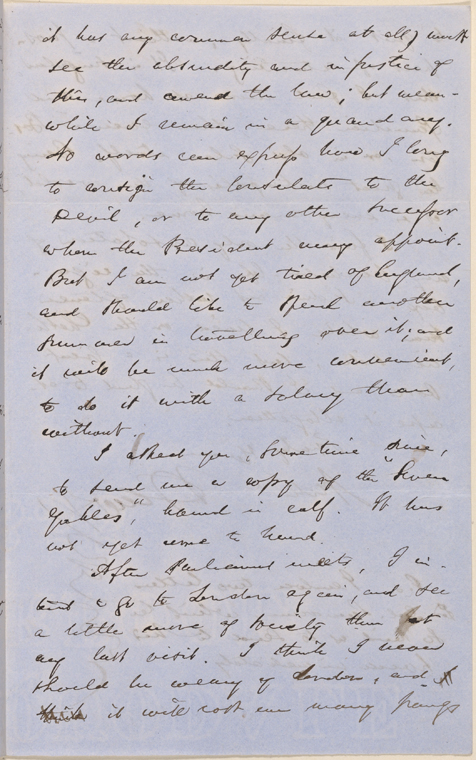 it has any common sense at all) must
see the absurdity and injustice of
this, and amend the law; but mean-
while I remain in a quandary.
No words can express how I long
to resign the Consulate to the
Devil, or to any other successor
whom the President may appoint.
But I am not yet tired of England,
and should like to spend another
summer in travelling over it; and
it will be much more convenient,
to do it with a salary than
without.
I asked you, some time since,
to send me a copy of the "Seven
Gables," bound in calf. It has
not yet come to hand.
After Parliament meets, I in-
tend to go to London again, and see
a little more of society than at
my last visit. I think I never
should be weary of London, and I
think it will cost me many pangs